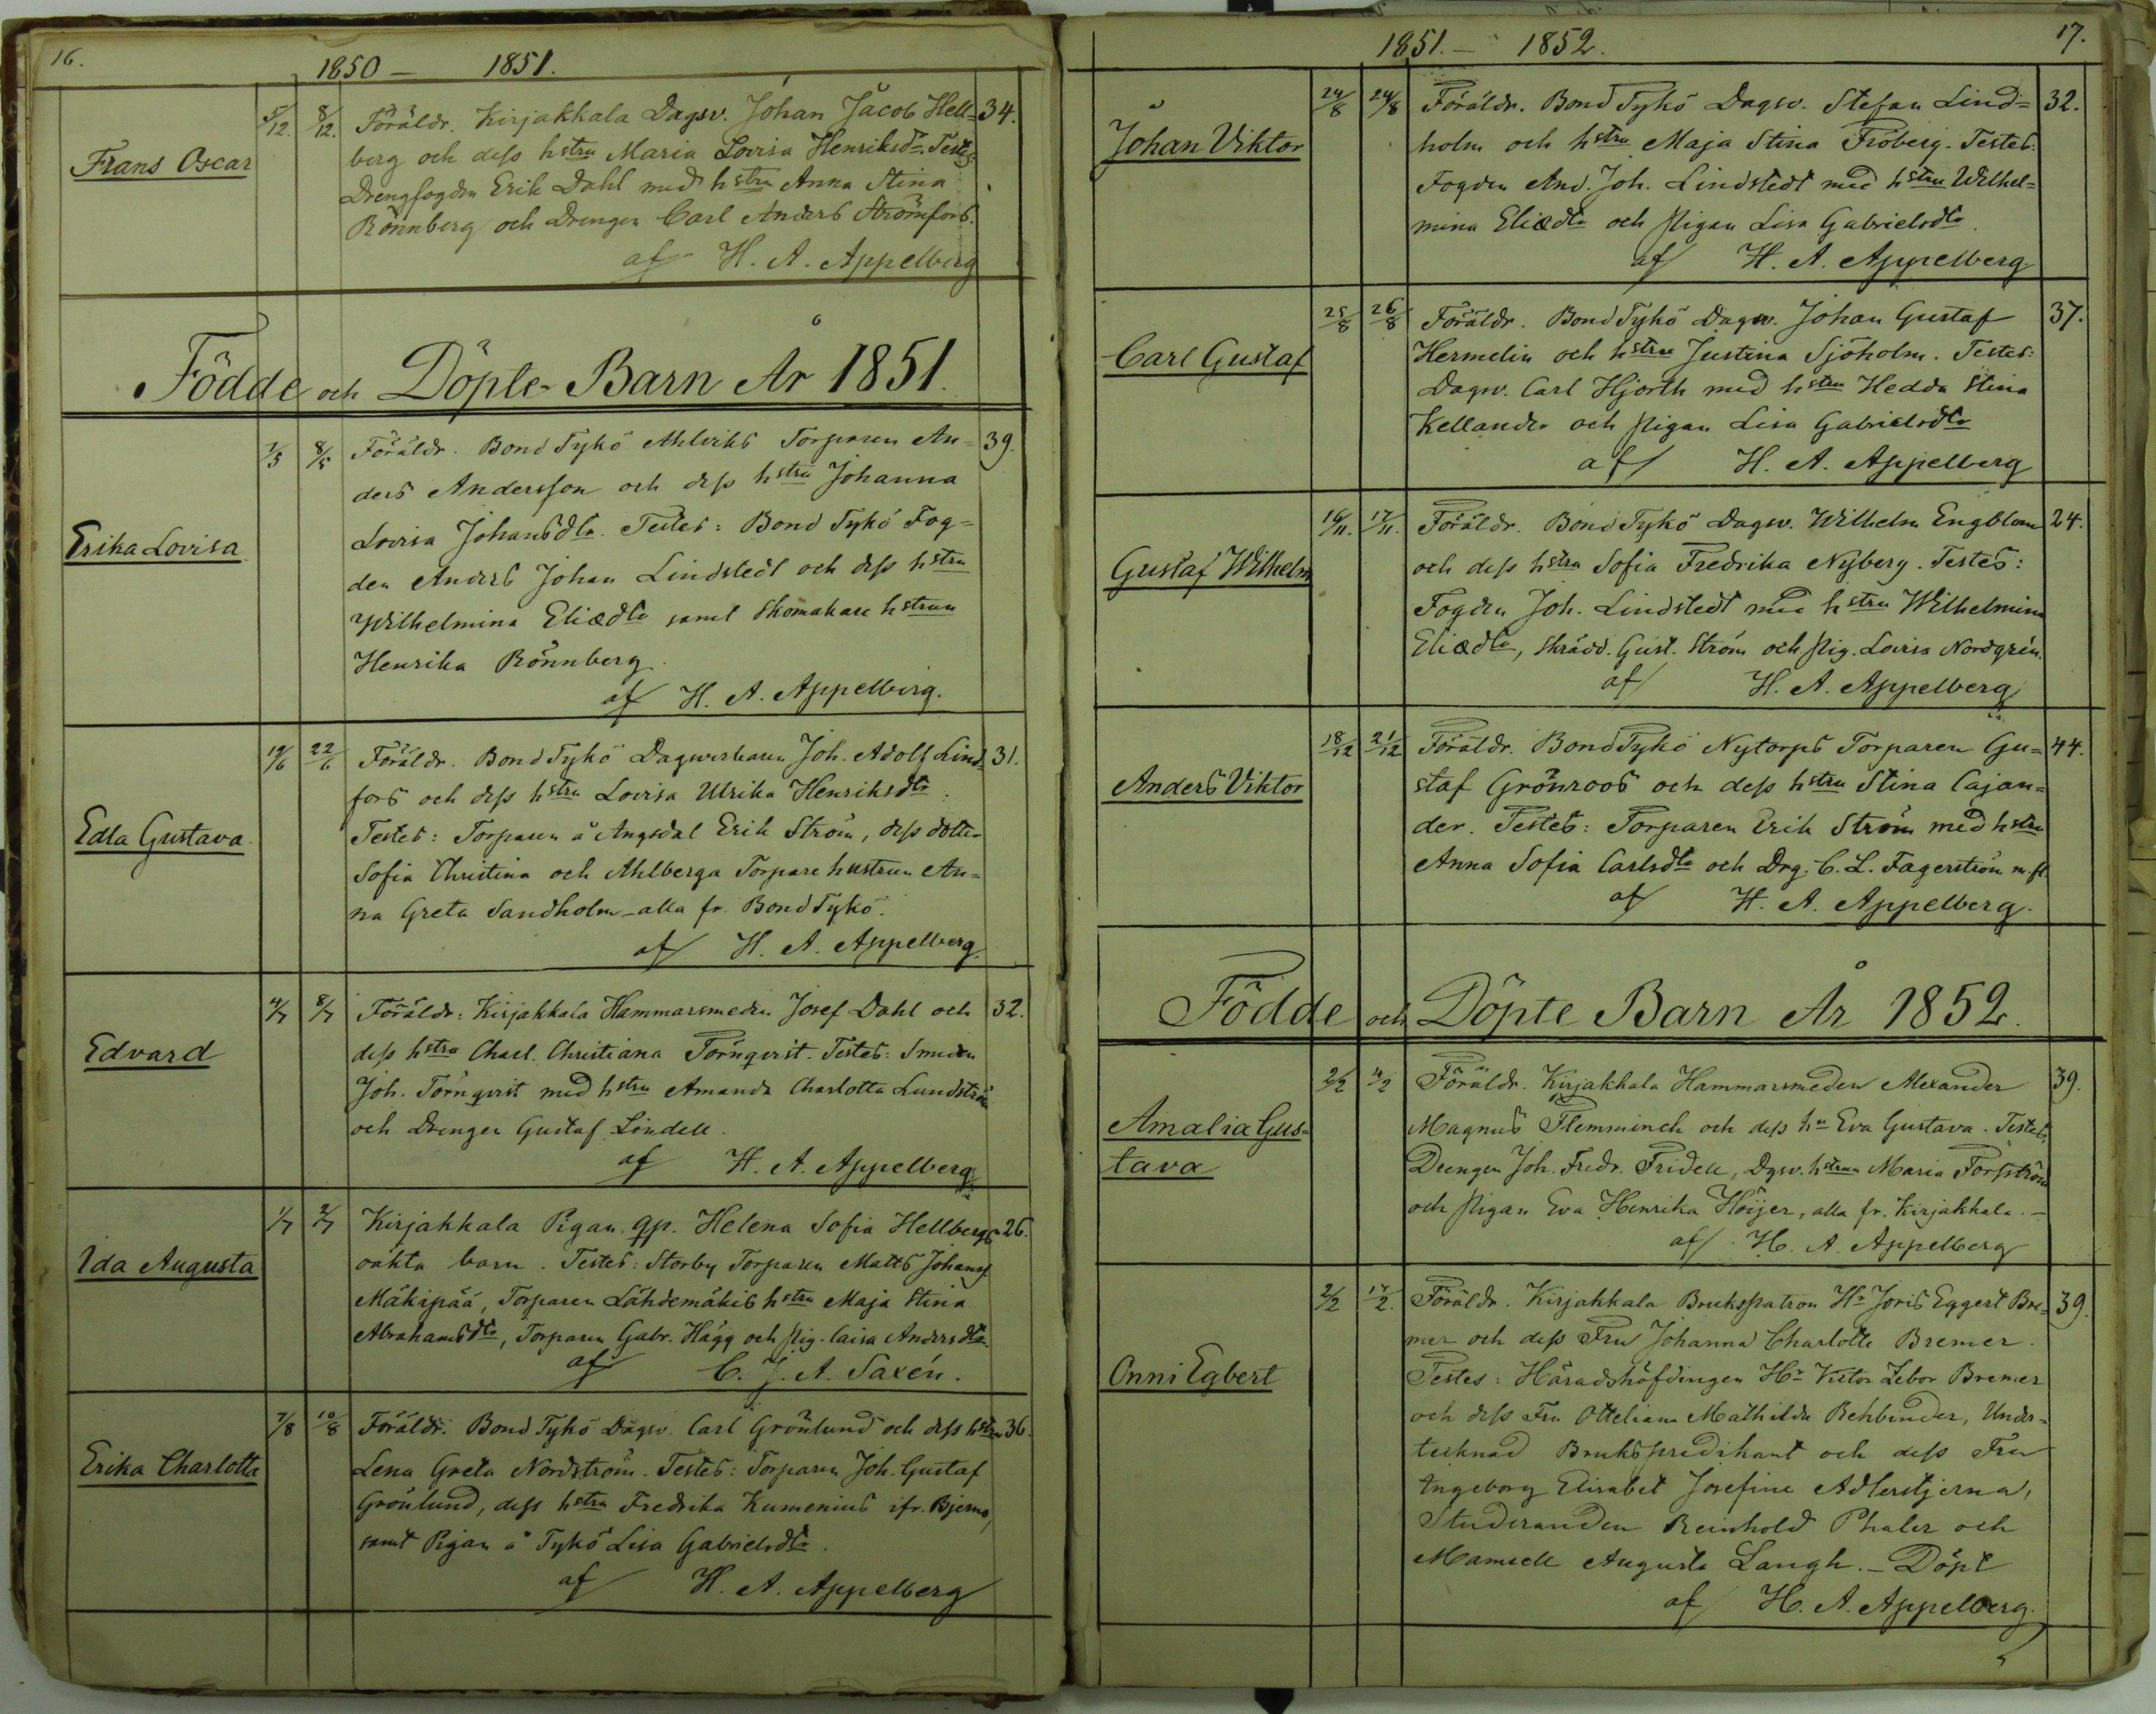 16.
1850 — 1851.
Frans Oscar
5/12. 8/12. Föräldr. Kirjakkala Dagsv. Johan Jacob Hell= 34.
berg och dess hstru Maria Lovisa Henriksdr. Testes:
Drengfogden Erik Dahl med hstru Anna Stina
Rönnberg och Drengen Carl Anders Strömfors.
af H. A. Appelberg
Födde och Döpte Barn År 1851.
Erika Lovisa
7/5 8/5 Föräldr. Bond Tykö Ahlviks Torparen An= 39.
ders Andersson och dess hstru Johanna
Lovisa Johansdtr. Testes: Bond Tykö Fog=
den Anders Johan Lindstedt och dess hstru
Wilhelmina Eliædtr samt Skomakare hstrun
Henrika Rönnberg.
af H. A. Appelberg.
Edla Gustava
19/6 22/6 Föräldr. Bond Tykö Dagsverkaren Joh. Adolf Lind= 31.
fors och dess hstru Lovisa Ulrika Henriksdtr.
Testes: Torparen å Ångsdal Erik Ström, dess dotter
Sofia Christina och Ahlberga Torpare hustrun An=
na Greta Sandholm – alla fr. Bond Tykö.
af H. A. Appelberg.
Edvard
4/7 8/7 Föräldr: Kirjakkala Hammarsmeden Josef Dahl och 32.
dess hstru Charl. Christiana Törnqvist. Testes: Smeden
Joh. Törnqvist med hstru Amanda Charlotta Lundström
och Drengen Gustaf Lindell.
af H. A. Appelberg
Ida Augusta
1/7 2/7 Kirjakkala Pigan qp. Helena Sofia Hellbergs 26.
oäkta barn. Testes: Storby Torparen Matts Johansf
Mäkipää, Torparen Lähdemäkis hstru Maja Stina
Abrahamsdtr, Torparen Gabr. Hägg och Pig. Caisa Andersdtr.
af C. J. A. Saxén.
Erika Charlotta
7/8 10/8 Föräldr. Bond Tykö Dagsv. Carl Grönlund och dess hstru 36.
Lena Greta Nordström. Testes: Torparen Joh. Gustaf
Grönlund, dess hstru Fredrika Kumenius ifr. Bjerno,
samt Pigan å Tykö Lisa Gabrielsdtr.
af H. A. Appelberg
1851. — 1852.
17.
Johan Viktor
24/8 24/8 Föräldr. Bond Tykö Dagsv. Stefan Lind= 32.
holm och hstru Maja Stina Fröberg. Testes:
Fogden And. Joh. Lindstedt med hstru Wilhel=
mina Eliædtr och Pigan Lisa Gabrielsdtr.
af H. A. Appelberg.
Carl Gustaf
25/8 26/8 Föräldr. Bond Tykö Dagsv. Johan Gustaf 37.
Hermelin och hstru Justina Sjöholm. Testes:
Dagsv. Carl Hjorth med hstru Hedda Stina
Kellander och Pigan Lisa Gabrielsdtr
af H. A. Appelberg
Gustaf Wilhelm
16/11. 17/11. Föräldr. Bond Tykö Dagsv. Wilhelm Engblom 24.
och dess hstru Sofia Fredrika Nyberg. Testes:
Fogden Joh. Lindstedt med hstru Wilhelmina
Eliædtr, Skrädd. Gust. Ström och Pig. Lovisa Nordgrén.
af H. A. Appelberg
Anders Viktor
18/12 21/12 Föräldr. Bond Tykö Nytorps Torparen Gu= 44.
staf Grönroos och dess hstru Stina Cajan=
der. Testes: Torparen Erik Ström med hstru
Anna Sofia Carlsdtr och Drg. C. L. Fagerström m.fl.
af H. A. Appelberg.
Födde och Döpte Barn År 1852.
Amalia Gus=
tava
2/2 4/2 Föräldr. Kirjakkala Hammarsmeden Alexander 39.
Magnus Flemminck och dess hu Eva Gustava. Testes:
Drengen Joh. Fredr. Fridell, Dgsv. hstrun Maria Forsström
och Pigan Eva Henrika Höijer, alla fr. Kirjakkala. –
af H. A. Appelberg
Onni Egbert
2/2 17/2. Föräldr. Kirjakkala Brukspatron Hr Joris Eggert Bre= 39.
mer och dess Fru Johanna Charlotte Bremer.
Testes: Häradshöfdingen Hr Victor Zebor Bremer
och dess Fru Otteliana Mathilda Rehbinder, Under=
tecknad Brukspredikant och dess Fru
Ingeborg Elisabet Josefine Adlerstjerna,
Studeranden Reinhold Phaler och
Mamsell Augusta Langh. – Döpt
af H. A. Appelberg.